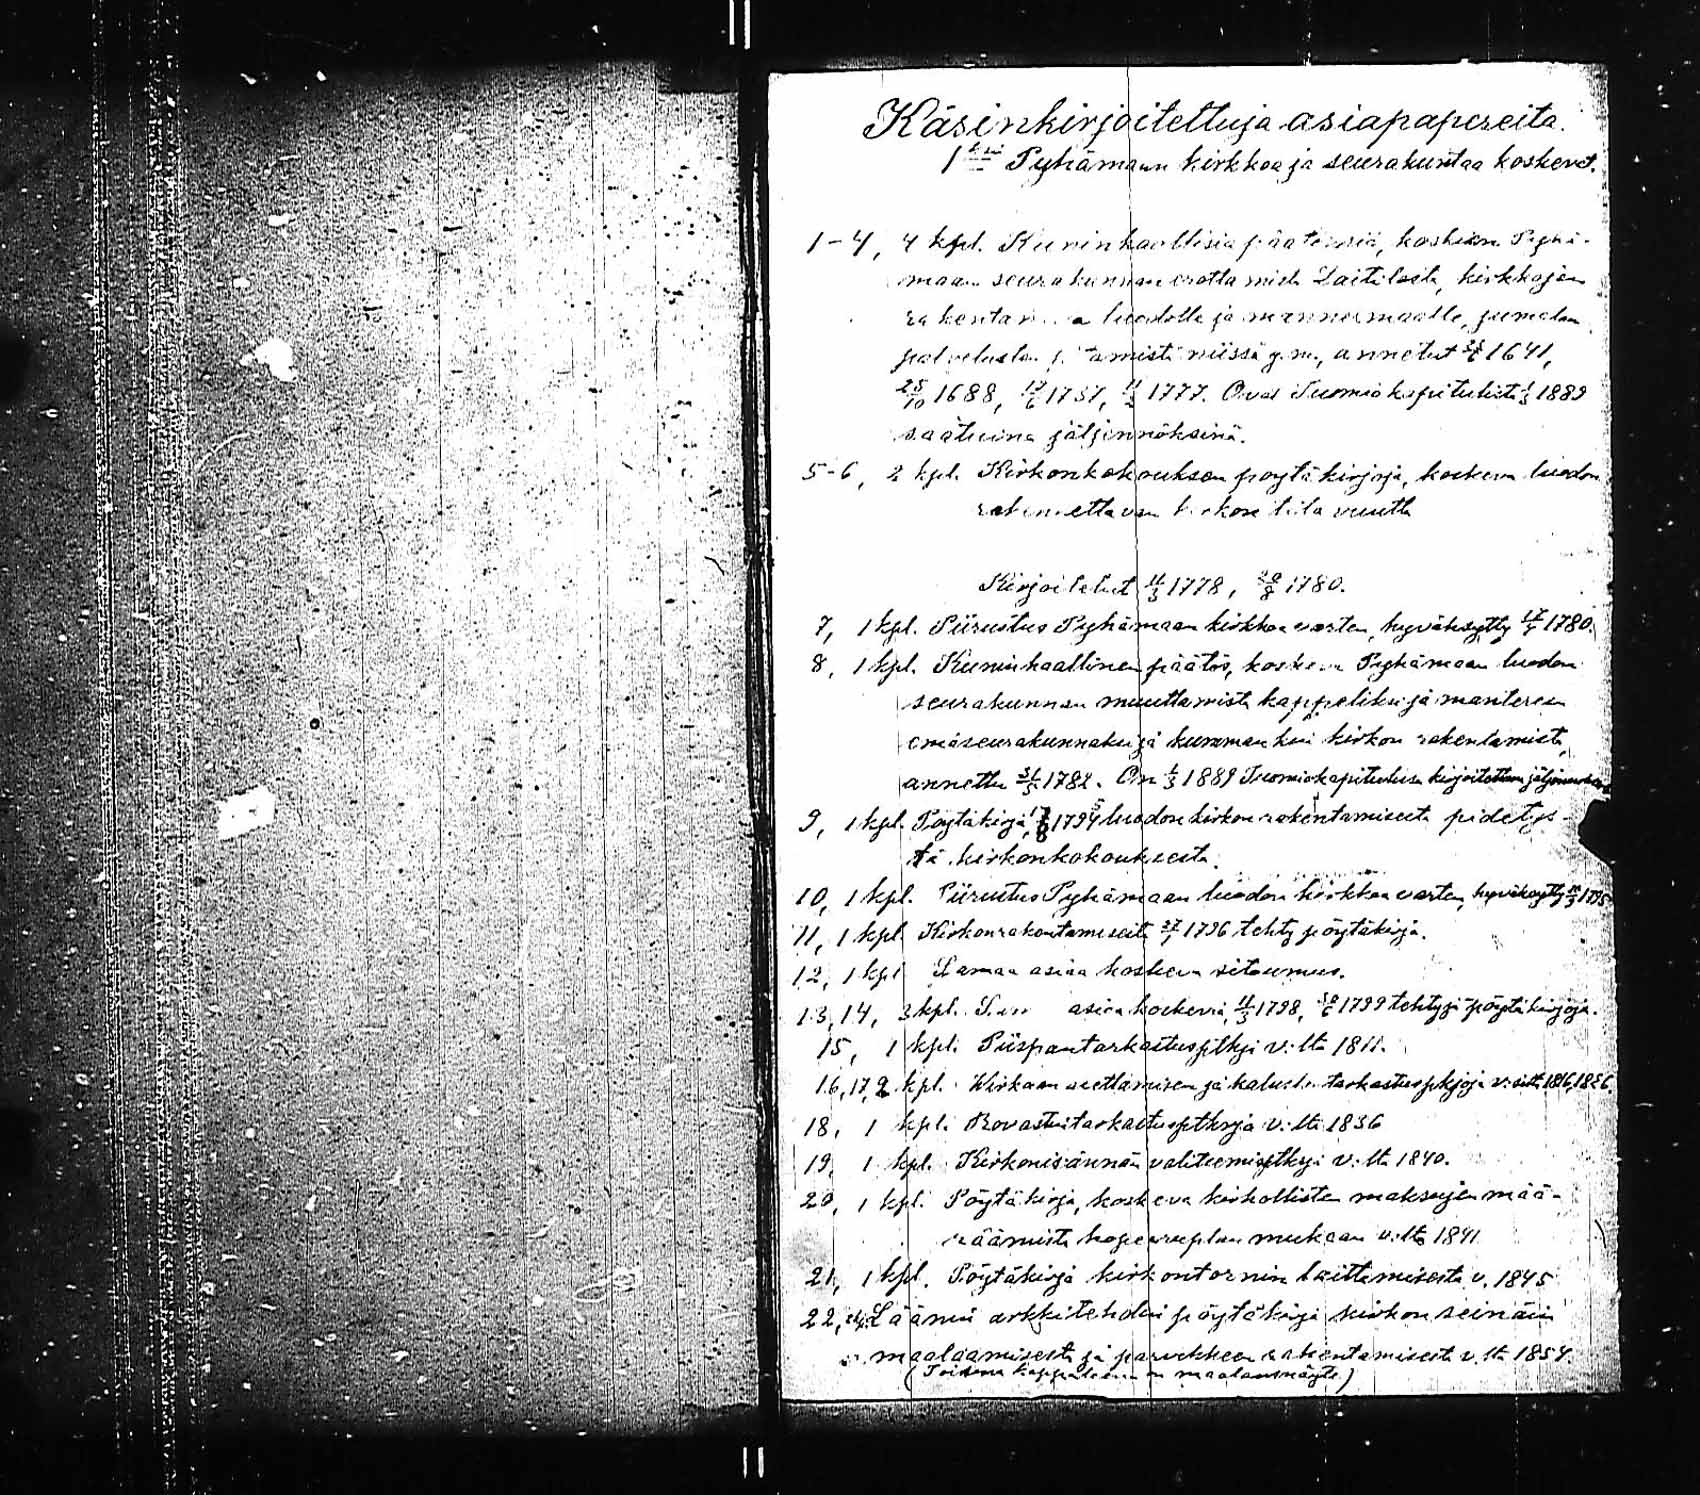 Käsinkirjoitettuja asiapapereita.
1 Pyhämaan kirkkoa ja seurakuntaa koskevat.
1-4, 4 kpl. Kuninkaallisia päätöksiä, koskien Pyhä-
maan seurakunnan erottamista Laitilasta, kirkkojen
luodolle ja mannermaalle, jumalan
palvelusten niissä y.m., annetut 1641,
25/10 1688, 1757, 1777. Ovat Tuomiokapitulista 1889
saatuina jäljennöksinä.
5-6, 2 kpl. Kirkonkokouksen pöytäkirjoja, koskeva luodon
rakennettavan kirkon tilavuutta
Kirjoitetut 11/3 1778, 1780.
7, 1 kpl. Piirustus Pyhämaan kirkkoa varten, hyväksytty 1780.
8, 1 kpl. Kuninkaallinen päätös, koskeva Pyhämaan luodon
seurakunnan muuttamista kappeliksi ja mantereen
emäseurakunnaksi ja kumman kirkon rakentamista,
annettu 1782. On 1/3 1889 Tuomiokapitulissa kirjoitettuna
9, 1 kpl. Pöytäkirja, luodon kirkon rakentamisesta pidetys-
tä kirkonkokouksesta.
10, 1 kpl. Piirustus Pyhämaan luodon kirkkoa varten, hyväksytty 1795
11, 1 kpl Kirkonrakentamisesta 1796 tehty pöytäkirja.
12, 1 kpl Samaa asiaa koskeva sitoumus.
13, 14, 3 kpl. asiaa koskevia, 11/3 1798, 1799 tehtyjä pöytäkirjoja.
15, 1 kpl. Piispantarkastusptkja v:lta 1811.
16, 17, 2 kpl. Kirkaan asettamisen ja kaluston tarkastusptkjoja
18, 1 kpl. Rovastintarkastusptkrja v:lta 1836
19, 1 kpl. Kirkonisännän valitsemisptkrja v:lta 1840.
20, 1 kpl. Pöytäkirja, koskeva kirkollisten maksujen mää-
räämistä hopearuplan mukaan v:lta 1841
21, 1 kpl. Pöytäkirja kirkontornin laittamisesta v. 1845
22, Läänin arkkitehdin pöytäkirja kirkon seinäin
maalaamisesta ja parvekkeen rakentamisesta v.lta 1854.
(Toisena kappaleena on maalausnäyte)